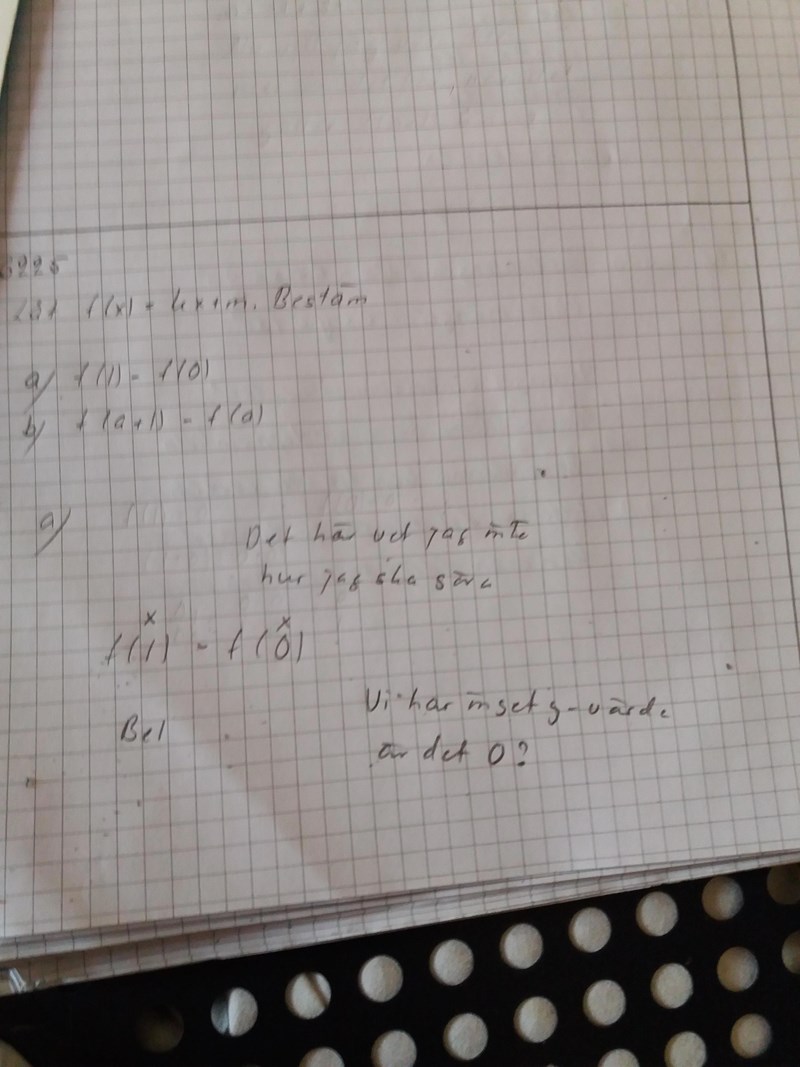 3225
f(x) = kx+m. Bestäm
a) f(1) - f(0)
b) f(a+1) - f(a)
a)
Det här vet jag inte
hur jag ska göra
x x
f(1) - f(0)
Vi har inget y-värde
Bel
är det 0?